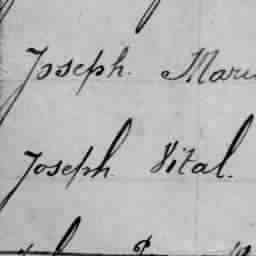 Joseph. Marie
Joseph Vital.